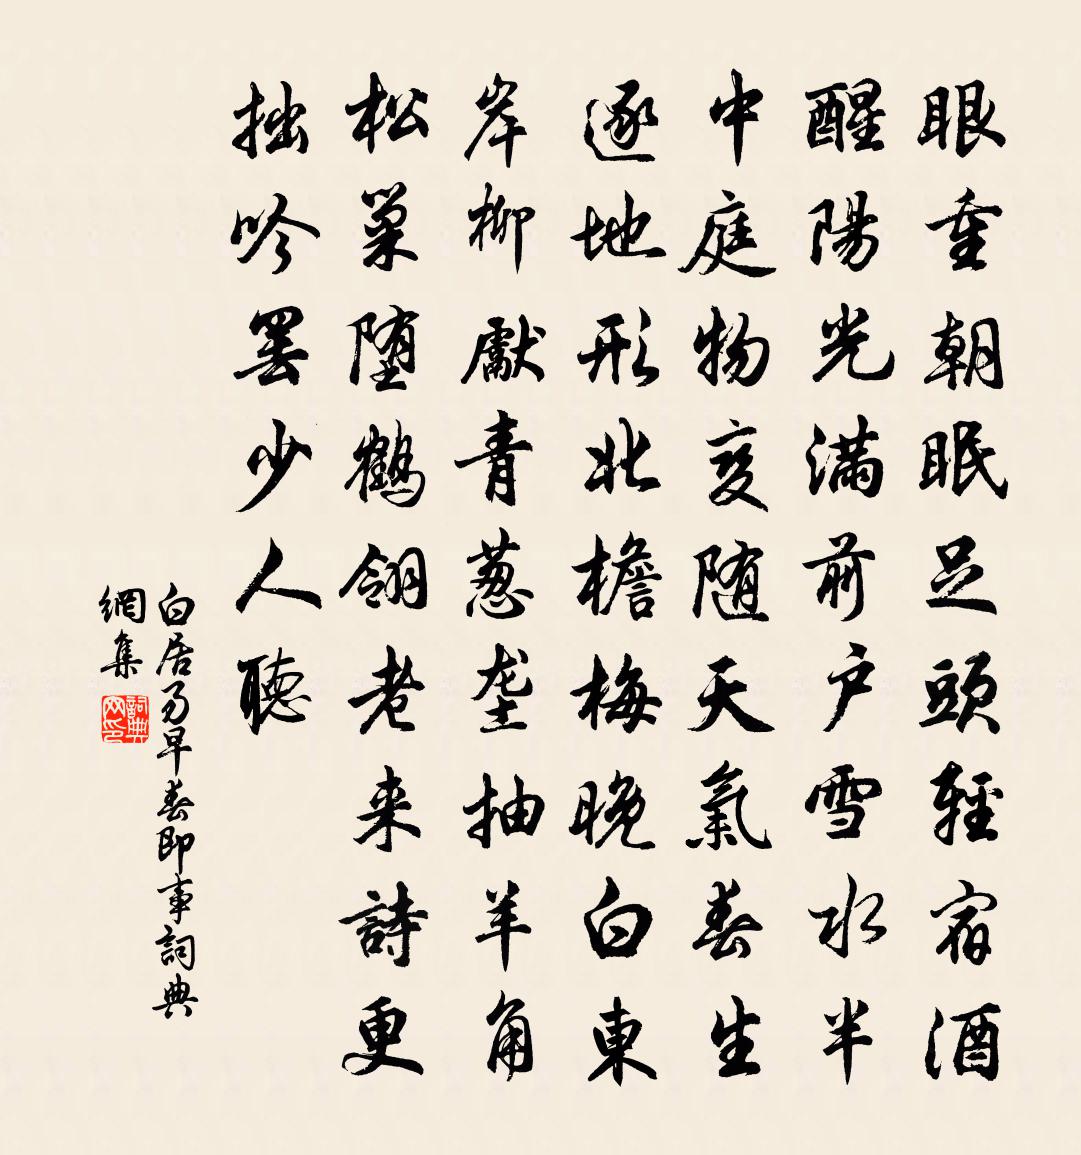 眼重朝眠足頭輕宿酒
醒陽光滿前户雪水半
中庭物变随天氣春生
逐地形北檐梅晚白東
岸柳獻青葱垄抽羊角
松巢堕鶴翎老来詩更
拙吟罢少人聽
白居易早春即事詞典
網集
詞典
网印